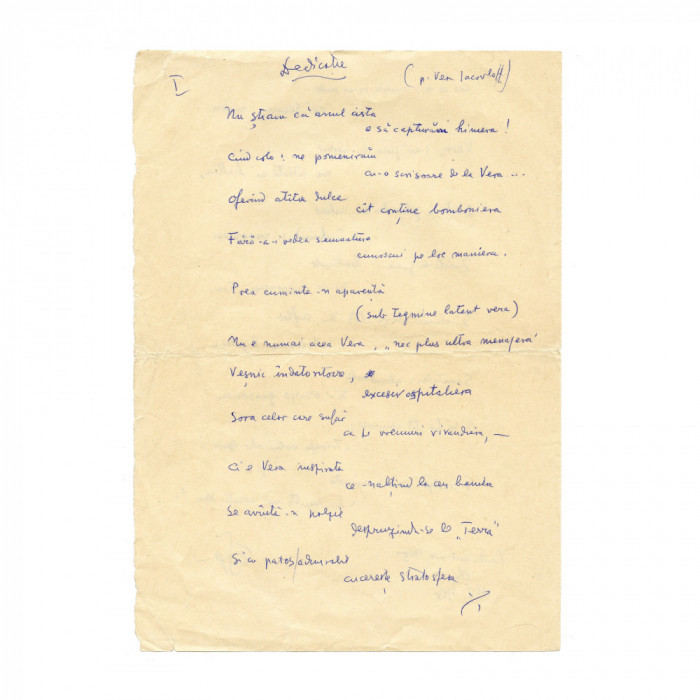 Dedicație
(p. Vera Iacovloff)
I
Nu știam că anul ăsta
o să capturăm himera!
Cînd colo: ne pomenirăm
cu-o scrisoare de la Vera...
Oferind atîta dulce
cît conține bomboniera
Fără-a-i vedea semnătura
cunoscui pe loc maniera.
Prea cuminte-n aparență
(sub tegmine latent vera)
Nu e numai acea Vera, „nec plus ultra menajeră"
Veșnic îndatoritoare,
exces ospitaliera
Sora celor care sufăr
ca pe vremuri vivandiera, —
Ci e Vera inspirată
ce-nălțînd la cer
Se avîntă-n
desprinzîndu-se de „Terra"
Și cu patos admirabil
cucerește stratosfera